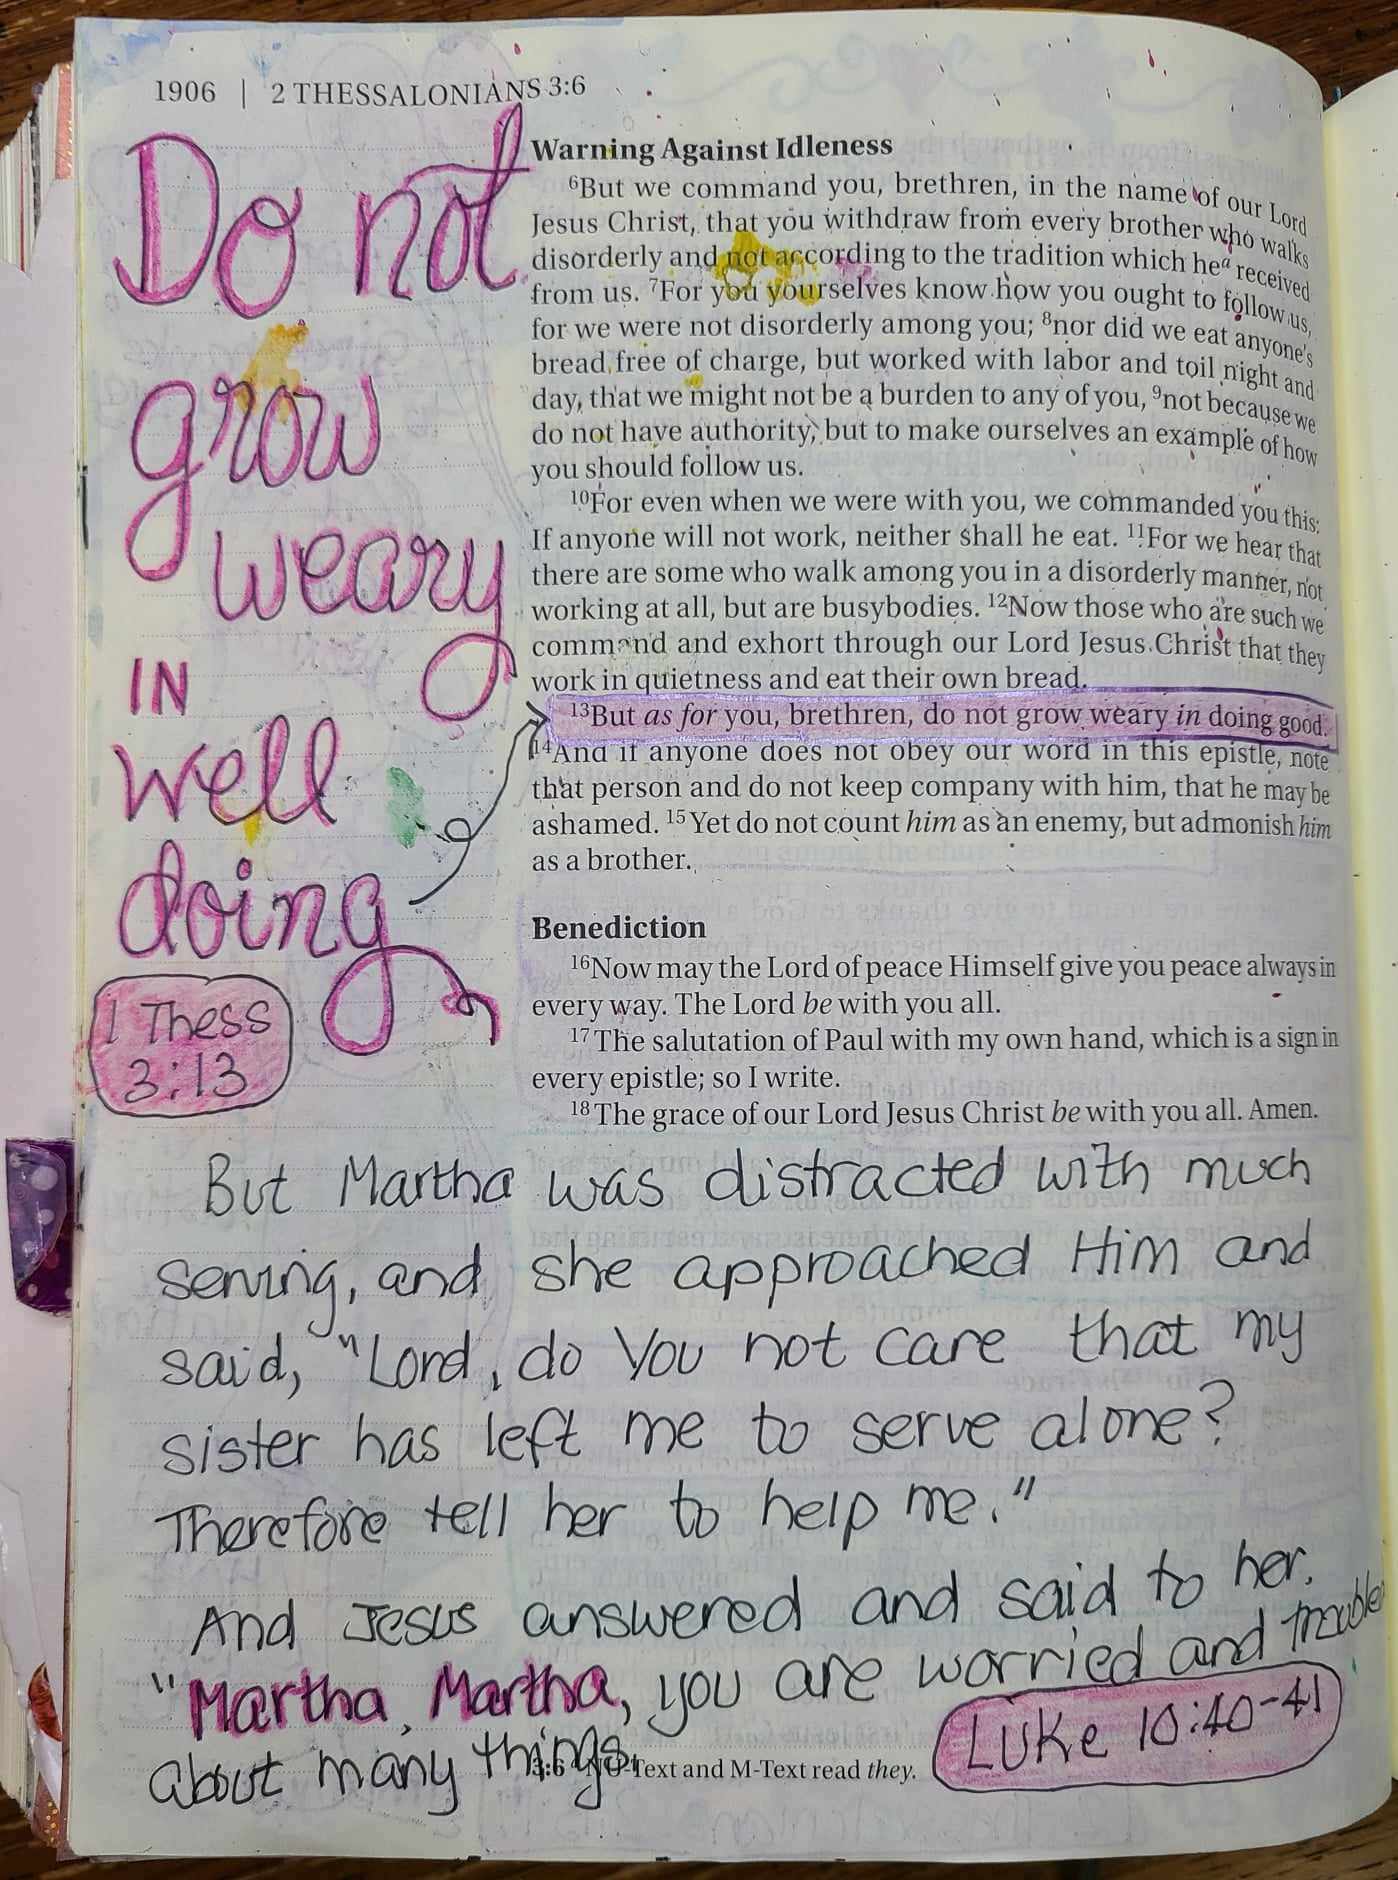 1906 | 2 THESSALONIANS 3:6
Do not
grow
weary
IN
well
doing
1 Thess
3:13
Warning Against Idleness
⁶But we command you, brethren, in the name of our Lord
Jesus Christ, that you withdraw from every brother who walks
disorderly and not according to the tradition which heᵃ received
from us. ⁷For you yourselves know how you ought to follow us,
for we were not disorderly among you; ⁸nor did we eat anyone's
bread free of charge, but worked with labor and toil night and
day, that we might not be a burden to any of you, ⁹not because we
do not have authority, but to make ourselves an example of how
you should follow us.
¹⁰For even when we were with you, we commanded you this:
If anyone will not work, neither shall he eat. ¹¹For we hear that
there are some who walk among you in a disorderly manner, not
working at all, but are busybodies. ¹²Now those who are such we
command and exhort through our Lord Jesus Christ that they
work in quietness and eat their own bread.
¹³But as for you, brethren, do not grow weary in doing good.
¹⁴And if anyone does not obey our word in this epistle, note
that person and do not keep company with him, that he may be
ashamed. ¹⁵Yet do not count him as an enemy, but admonish him
as a brother.
Benediction
¹⁶Now may the Lord of peace Himself give you peace always in
every way. The Lord be with you all.
¹⁷The salutation of Paul with my own hand, which is a sign in
every epistle; so I write.
¹⁸The grace of our Lord Jesus Christ be with you all. Amen.
But Martha was distracted with much
serving, and she approached Him and
said, "Lord, do You not care that my
sister has left me to serve alone?
Therefore tell her to help me."
And Jesus answered and said to her.
"Martha, Martha, you are worried and trouble
about many things.
Luke 10:40-41
3:6 ᵃ NU-Text and M-Text read they.